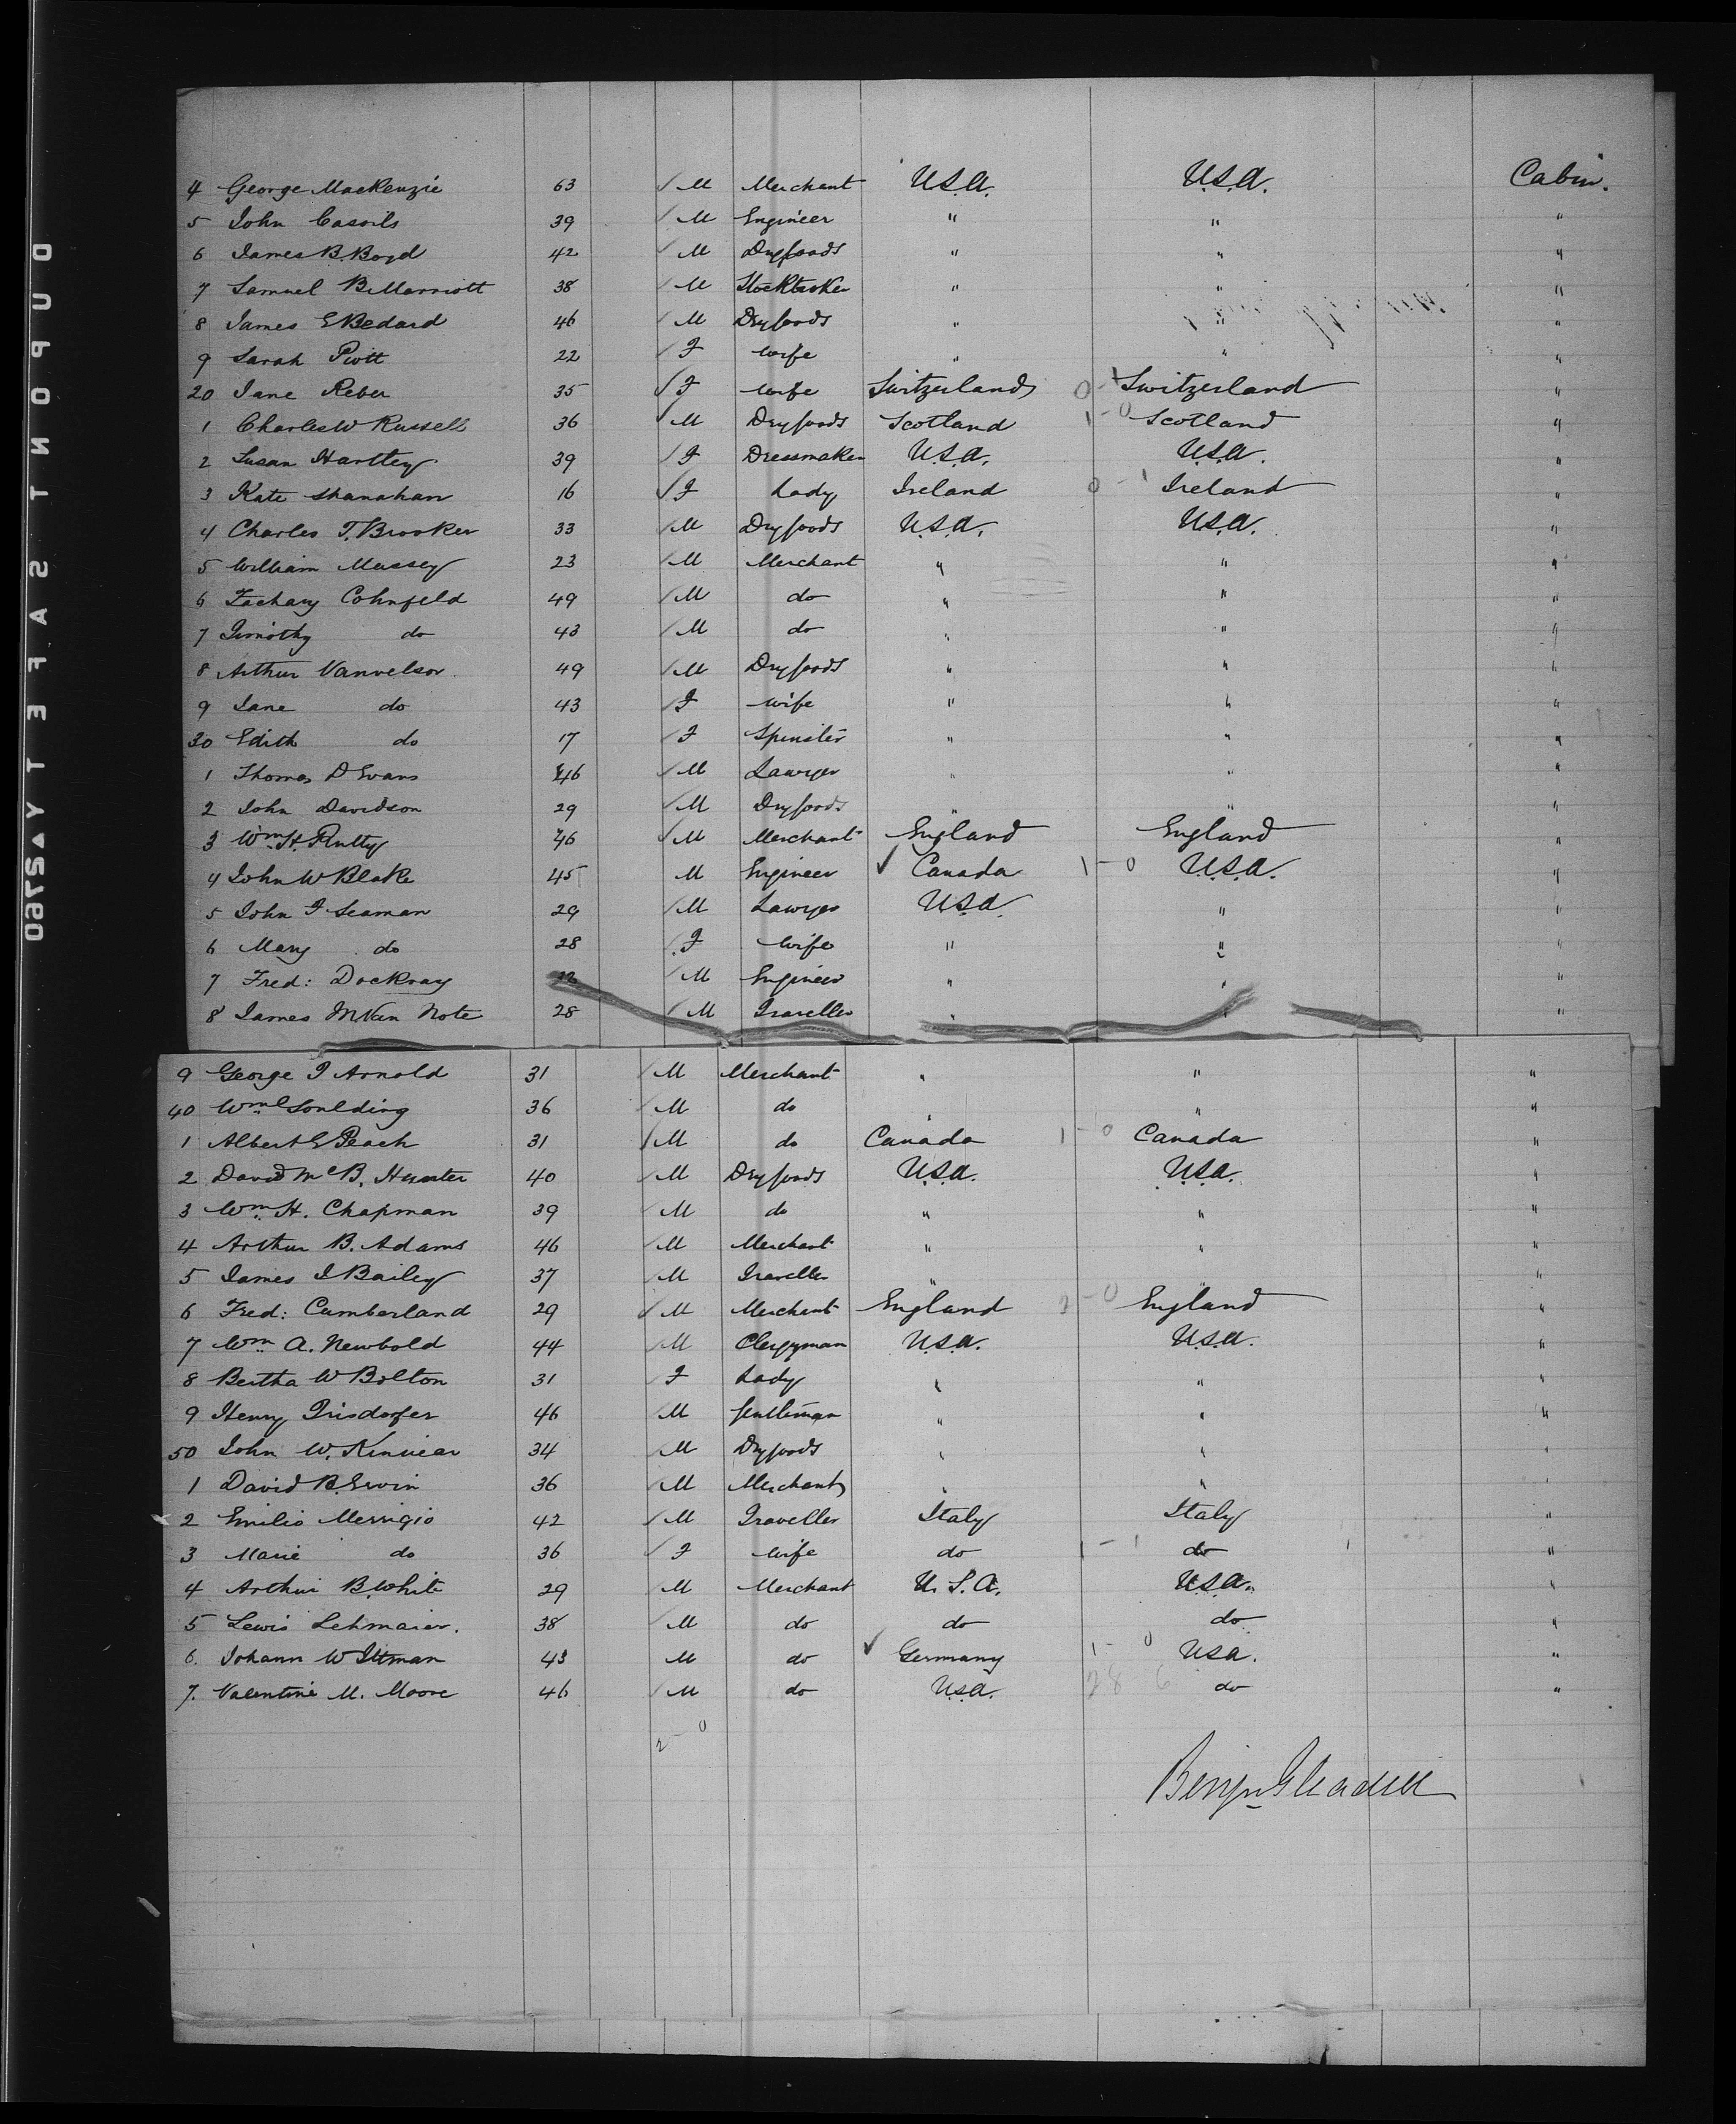 4 George MacKenzie 63 / M Merchant U.S.A. U.S.A. Cabin.
5 John Casoils 39 / M Engineer " " "
6 James B. Boyd 42 / M Dry goods " " "
7 Samuel B Marriott 38 / M Stockbroker " " "
8 James E Bedard 46 / M Dry goods " " "
9 Sarah Piott 22 / F wife " " "
20 Jane Reber 35 / F wife Switzerland 0 - 1 Switzerland "
1 Charles W Russell 36 / M Dry goods Scotland 1 - 0 Scotland "
2 Susan Hartley 39 / F Dressmaker U.S.A. U.S.A. "
3 Kate Shanahan 16 / F Lady Ireland 0 - 1 Ireland "
4 Charles T. Brooker 33 / M Dry goods U.S.A. U.S.A. "
5 William Massey 23 / M Merchant " " "
6 Zachary Cohnfeld 49 / M do " " "
7 Timothy do 43 / M do " " "
8 Arthur Vanvelsor 49 / M Dry goods " " "
9 Jane do 43 / F wife " " "
30 Edith do 17 / F Spinster " " "
1 Thomas D Evans 46 / M Lawyer " " "
2 John Davidson 29 / M Dry goods " " "
3 Wm. H. Rutty 46 / M Merchant England England "
4 John W Blake 45 M Engineer ✓ Canada 1 - 0 U.S.A. "
5 John F Seaman 29 / M Lawyer U.S.A. " "
6 Mary do 28 / F wife " " "
7 Fred: Dockray / M Engineer " " "
8 James M Van Note 28 / M Traveller " " "
9 George J Arnold 31 / M Merchant " " "
40 Wm. C Goulding 36 / M do " " "
1 Albert E Peach 31 / M do Canada 1 - 0 Canada "
2 David McB. Hunter 40 / M Dry goods U.S.A. U.S.A. "
3 Wm. H. Chapman 39 / M do " " "
4 Arthur B. Adams 46 / M Merchant " " "
5 James J Bailey 37 / M Traveller " " "
6 Fred: Cumberland 29 / M Merchant England - 0 England "
7 Wm. A. Newbold 44 / M Clergyman U.S.A. U.S.A. "
8 Bertha W Bolton 31 / F Lady " " "
9 Henry Trisdorfer 46 / M Gentleman " " "
50 John W. Kinnear 34 / M Dry goods " " "
1 David B. Erwin 36 / M Merchant " " "
2 Emilio Merrigio 42 / M Traveller Italy Italy "
3 Marie do 36 / F wife do 1 - 1 do "
4 Arthur B. White 29 / M Merchant U.S.A. U.S.A. "
5 Lewis Lehmaier. 38 / M do do do "
6. Johann W Ittman 43 M do ✓ Germany 1 - 0 U.S.A. "
7. Valentine M. Moore 46 / M do U.S.A. 28 6 do "
2 - 0
DUPONT SAFETY